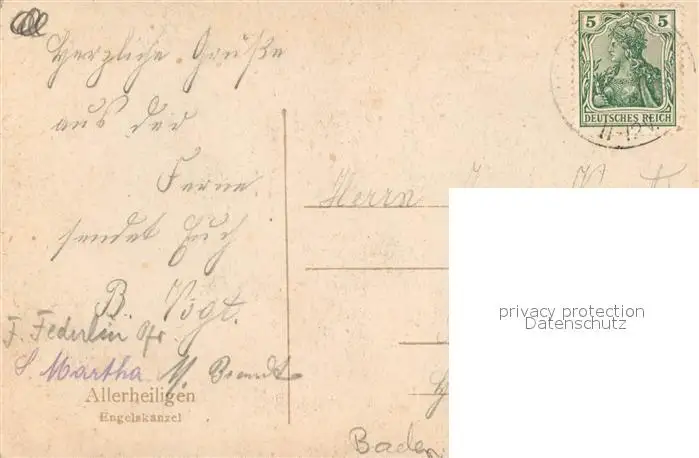 Herzliche Grüße
aus der
Ferne
sendet Euch
B. Vogt.
F. Federlin Pfr
S. Martha M. Brandt
Allerheiligen
Engelskanzel
5 5
DEUTSCHES REICH
11-12V.
Herrn
Baden
privacy protection
Datenschutz